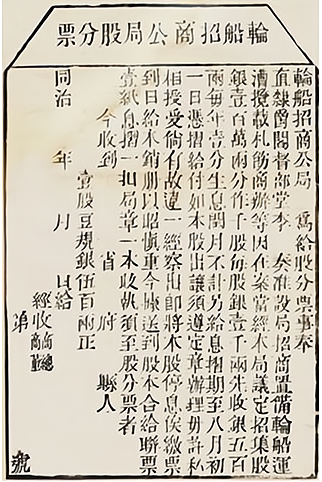 輪船招商公局股分票
輪船招商公局 為給股分票事奉
直隸爵閣督部堂李 奏准設局招商置備輪船運
漕攬載札飭商辦等因在案當經本局議定招集股
銀壹百萬兩分作千股每股銀壹千兩先收銀五百
兩每年壹分生息閏月不計另給息摺期至八月初
一日憑摺給付如本股出讓須遵定章辦理毋許私
相授受倘有故違一經察出即將本股停息俟繳票
到日給本銷冊以昭慎重今據送到股本合給聯票
壹紙息摺一扣局章一本收執須至股分票者
今收到 省 府 縣人
壹股豆規銀伍百兩正
同治 年 月 日給
經收商總
商董
第 號